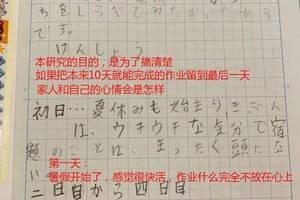 ちをしらべてみたかったから
です。
けんしょう
本研究的目的，是为了搞清楚
如果把本来10天就能完成的作业留到最后一天
家人和自己的心情会是怎样
初日…夏休みも始まりきごん
は、ウキウキな気分で宿
題のことは、まったく頭にな
い
第一天：
暑假开始了，感觉很快活，作业什么完全不放在心上
二日目から四日目